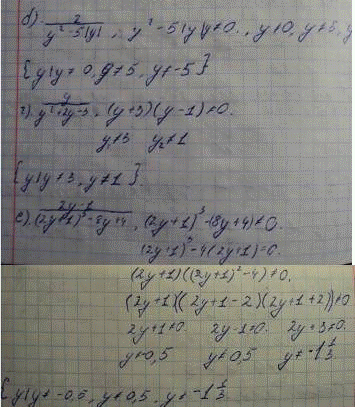 б). 2/(y²-5|y|), y²-5|y|≠0., y≠0, y≠5, y
{y|y≠0, y≠5, y≠-5}
г). y/(y²+2y-3), (y+3)(y-1)≠0.
y₁≠3 y₂≠1
{y|y≠3, y≠1}.
е). (2y-1)/((2y+1)³-8y+4), (2y+1)³-(8y+4)≠0.
(2y+1)³-4(2y+1)=0.
(2y+1)((2y+1)²-4)≠0.
(2y+1)((2y+1-2)(2y+1+2))≠0
2y+1≠0. 2y-1≠0. 2y+3≠0.
y≠0,5 y≠0,5 y≠-1⅓
{y|y≠-0,5, y≠0,5, y≠-1⅓